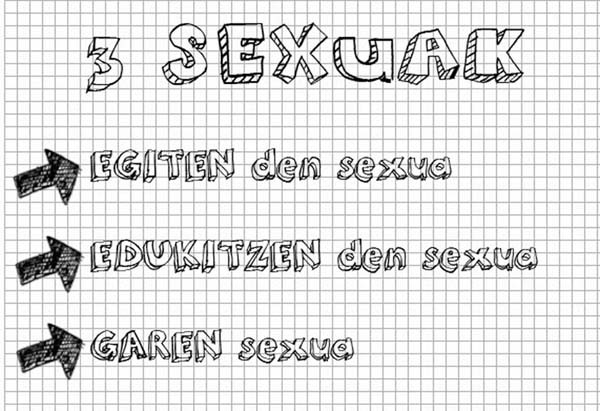 3 SEXUAK
EGITEN den sexua
EDUKITZEN den sexua
GAREN sexua